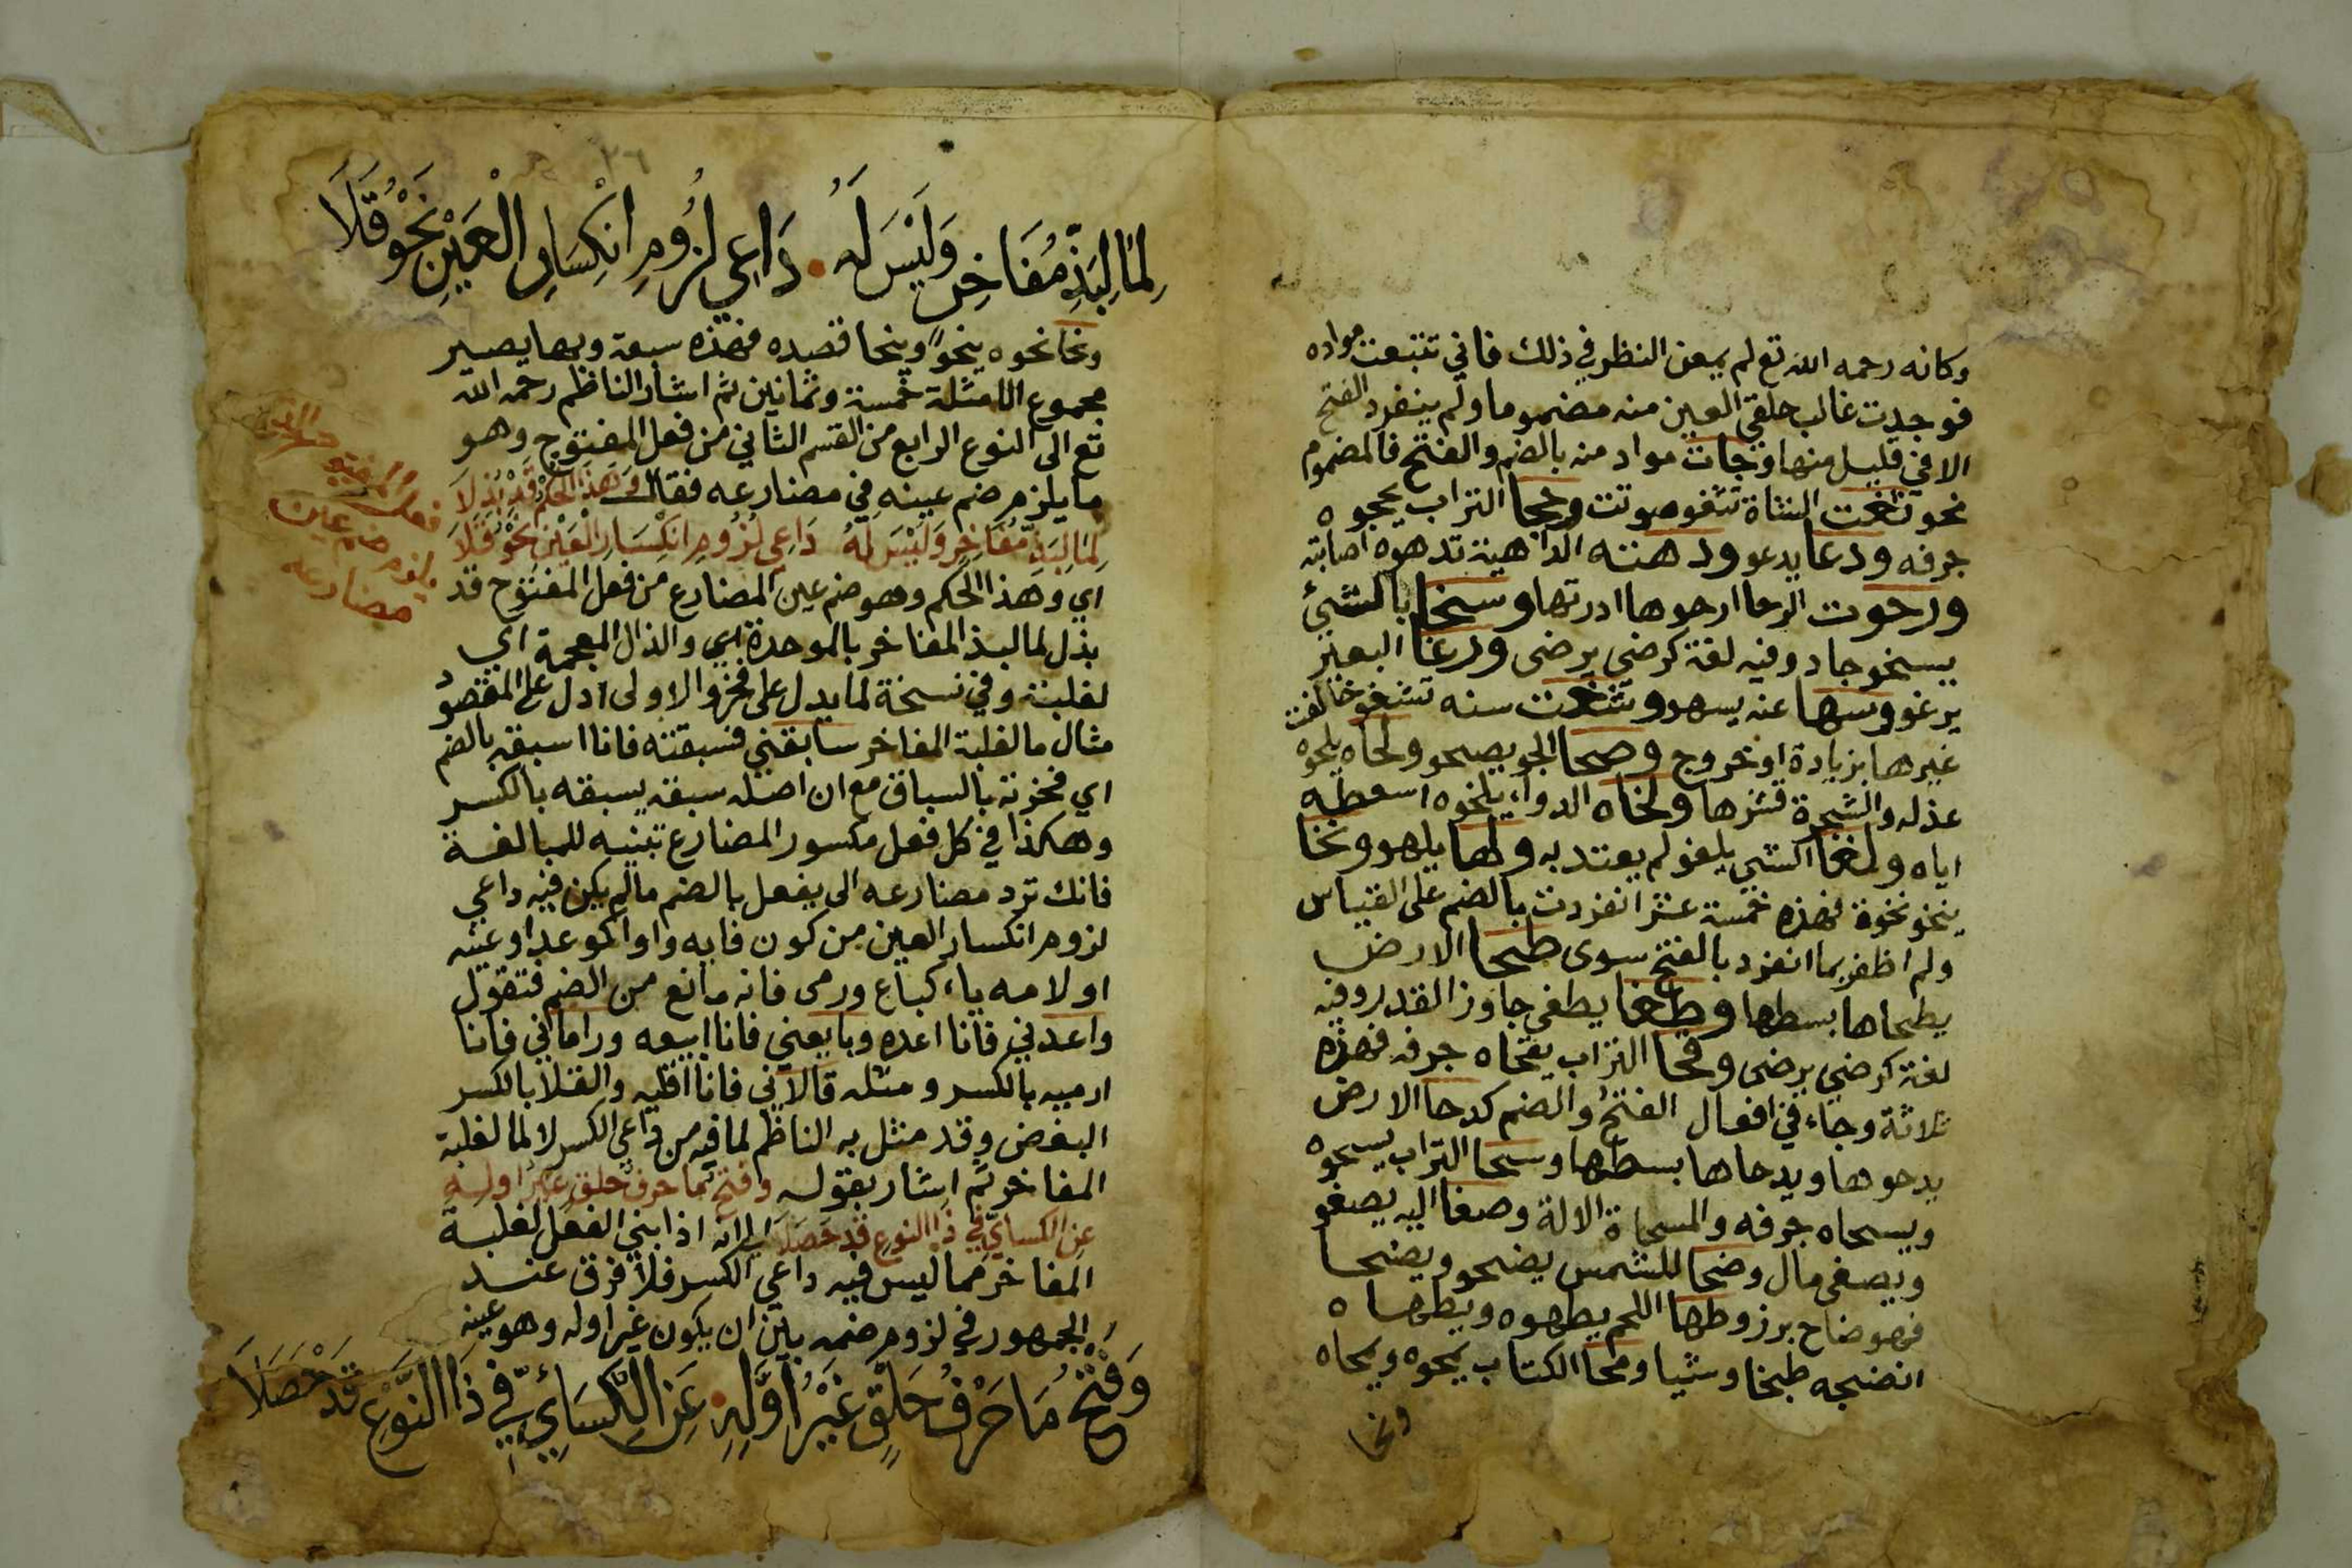 وكانه رحمه الله تع لم يمعن النظر في ذلك فاني تتبعت مواده
فوجدت غالب حلقي العين منه مضموما ولم ينفرد الفتح
الا في قليل منها وجات مواد منه بالضم والفتح فالمضموم
نحو ثغت الشاة تثغو صوتت وحجا التراب يحجوه
جرفه ودعا يدعو ودهته الداهية تدهوه اصابته
ورحوت الرحا ارحوها ادرتها وسخا بالشيئ
يسخو جاد وفيه لغة كرضي يرضى ورغا البعير
يرغو وسها عنه يسهو وشغت سنه تشغو خالفت
غيرها بزيادة او خروج وصحا الجو يصحو ولحاه يلحوه
عذله والشجرة قشرها ولخاه الدواء يلخوه اسعطه
اياه ولغا الشي يلغو لم يعتد به ولها يلهو ونخا
ينخو نخوة فهذه خمسة عشر انفردت بالضم على القياس
ولم اظفر بما انفرد بالفتح سوى طحا الارض
يطحاها بسطها وطغا يطغى جاوز القدر وفيه
لغة كرضي يرضى وقحا التراب يقحاه جرفه فهذه
ثلاثة وجاء في افعال الفتح والضم كدحا الارض
يدحوها ويدحاها بسطها وسحا التراب يسحوه
ويسحاه جرفه والمسحاة الالة وصغا اليه يصغو
ويصغى مال وضحا للشمس يضحو ويضحا
فهو ضاح برز وطها اللحم يطهوه ويطهاه
انضجه طبخا وشيا ومحا الكتاب يمحوه ويمحاه
ونحا
٢٦
لِمَا لِبَذِّ مُفَاخِرٍ وَلَيْسَ لَهُ . دَاعِي لُزُومِ انْكِسَارِ الْعَيْنِ نَحْوُ قَلَا
ونحا نحوه ينحو وينحا قصده فهذه سبعة وبها يصير
مجموع الامثلة خمسة وثمانين ثم اشار الناظم رحمه الله
تع الى النوع الرابع من القسم الثاني من فعل المفتوح وهو
ما يلزم ضم عينه في مضارعه فقال وَهَذَا الْحُكْمُ قَدْ بُذِلَا
لِمَا لِبَذِّ مُفَاخِرٍ وَلَيْسَ لَهُ دَاعِي لُزُومِ انْكِسَارِ الْعَيْنِ نَحْوُ قَلَا
اي وهذا الحكم وهو ضم عين المضارع من فعل المفتوح قد
بذل لما لبذ المفاخر بالموحدة اي والذال المعجمة اي
لغلبته وفي نسخة لما يدل على فخر والاولى ادل على المقصود
مثال ما لغلبة المفاخر سابقني فسبقته فانا اسبقه بالضم
اي فخرته بالسباق مع ان اصله سبقه يسبقه بالكسر
وهكذا في كل فعل مكسور المضارع تبنيه للمبالغة
فانك ترد مضارعه الى يفعل بالضم ما لم يكن فيه داعي
لزوم انكسار العين من كون فايه واوا كوعد او عينه
او لامه ياء كباع ورمى فانه مانع من الضم فتقول
واعدني فانا اعده وبايعني فانا ابيعه وراماني فانا
ارميه بالكسر ومثله قالاني فانا اقليه والقلا بالكسر
البغض وقد مثل به الناظم لما فيه من داعي الكسر لا لما لغلبة
المفاخر ثم اشار بقوله وفتح ما حرف حلق غير اوله
عن الكسائي في ذا النوع قد حصلا الى انه اذا بني الفعل لغلبة
المفاخر مما ليس فيه داعي الكسر فلا فرق عند
الجمهور في لزوم ضمه بين ان يكون غير اوله وهو عينه
وَفَتْحُ مَا حَرْفُ حَلْقٍ غَيْرُ أَوَّلِهِ . عَنِ الْكِسَائِيِّ فِي ذَا النَّوْعِ قَدْ حَصَلَا
يلزم ضم عين
مضارعه